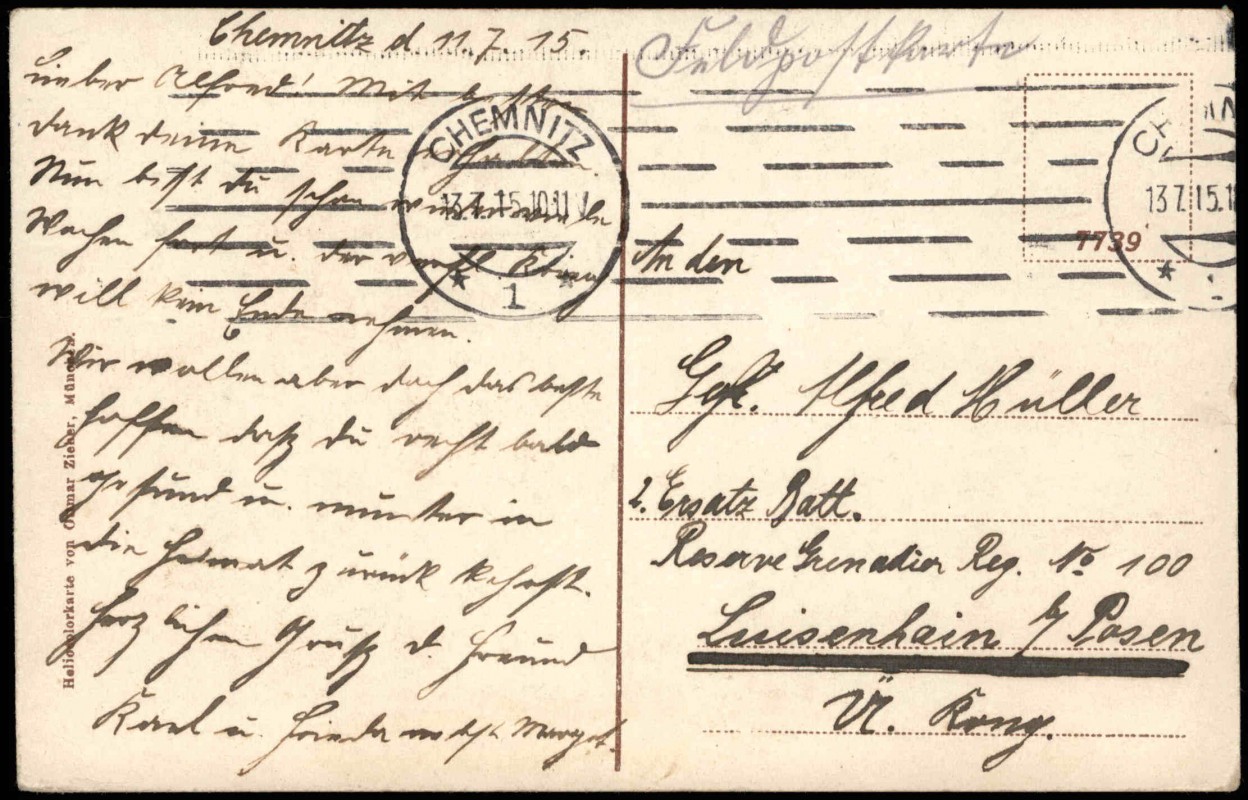 Chemnitz d 11.7.15.
Lieber Alfred! Mit besten
Dank deine Karte erhalten.
Nun bist du schon wieder
Wochen fort u. der
will kein Ende nehmen.
Wir wollen aber doch das beste
hoffen daß du recht bald
gesund u. munter in
die Heimat zurück kehrst.
Herzlichen Gruß d. Freund
Karl u. Frieda nebst Margot.
Heliocolorkarte von Ottmar Zieher, München.
Feldpostkarte
CHEMNITZ
13.7.15.10-11V
* 1 *
CH
13.7.15.1
* 1
7739
An den
Gefr. Alfred Müller
2. Ersatz Batl.
Reserve Grenadier Reg. No 100
Luisenhain b/ Posen